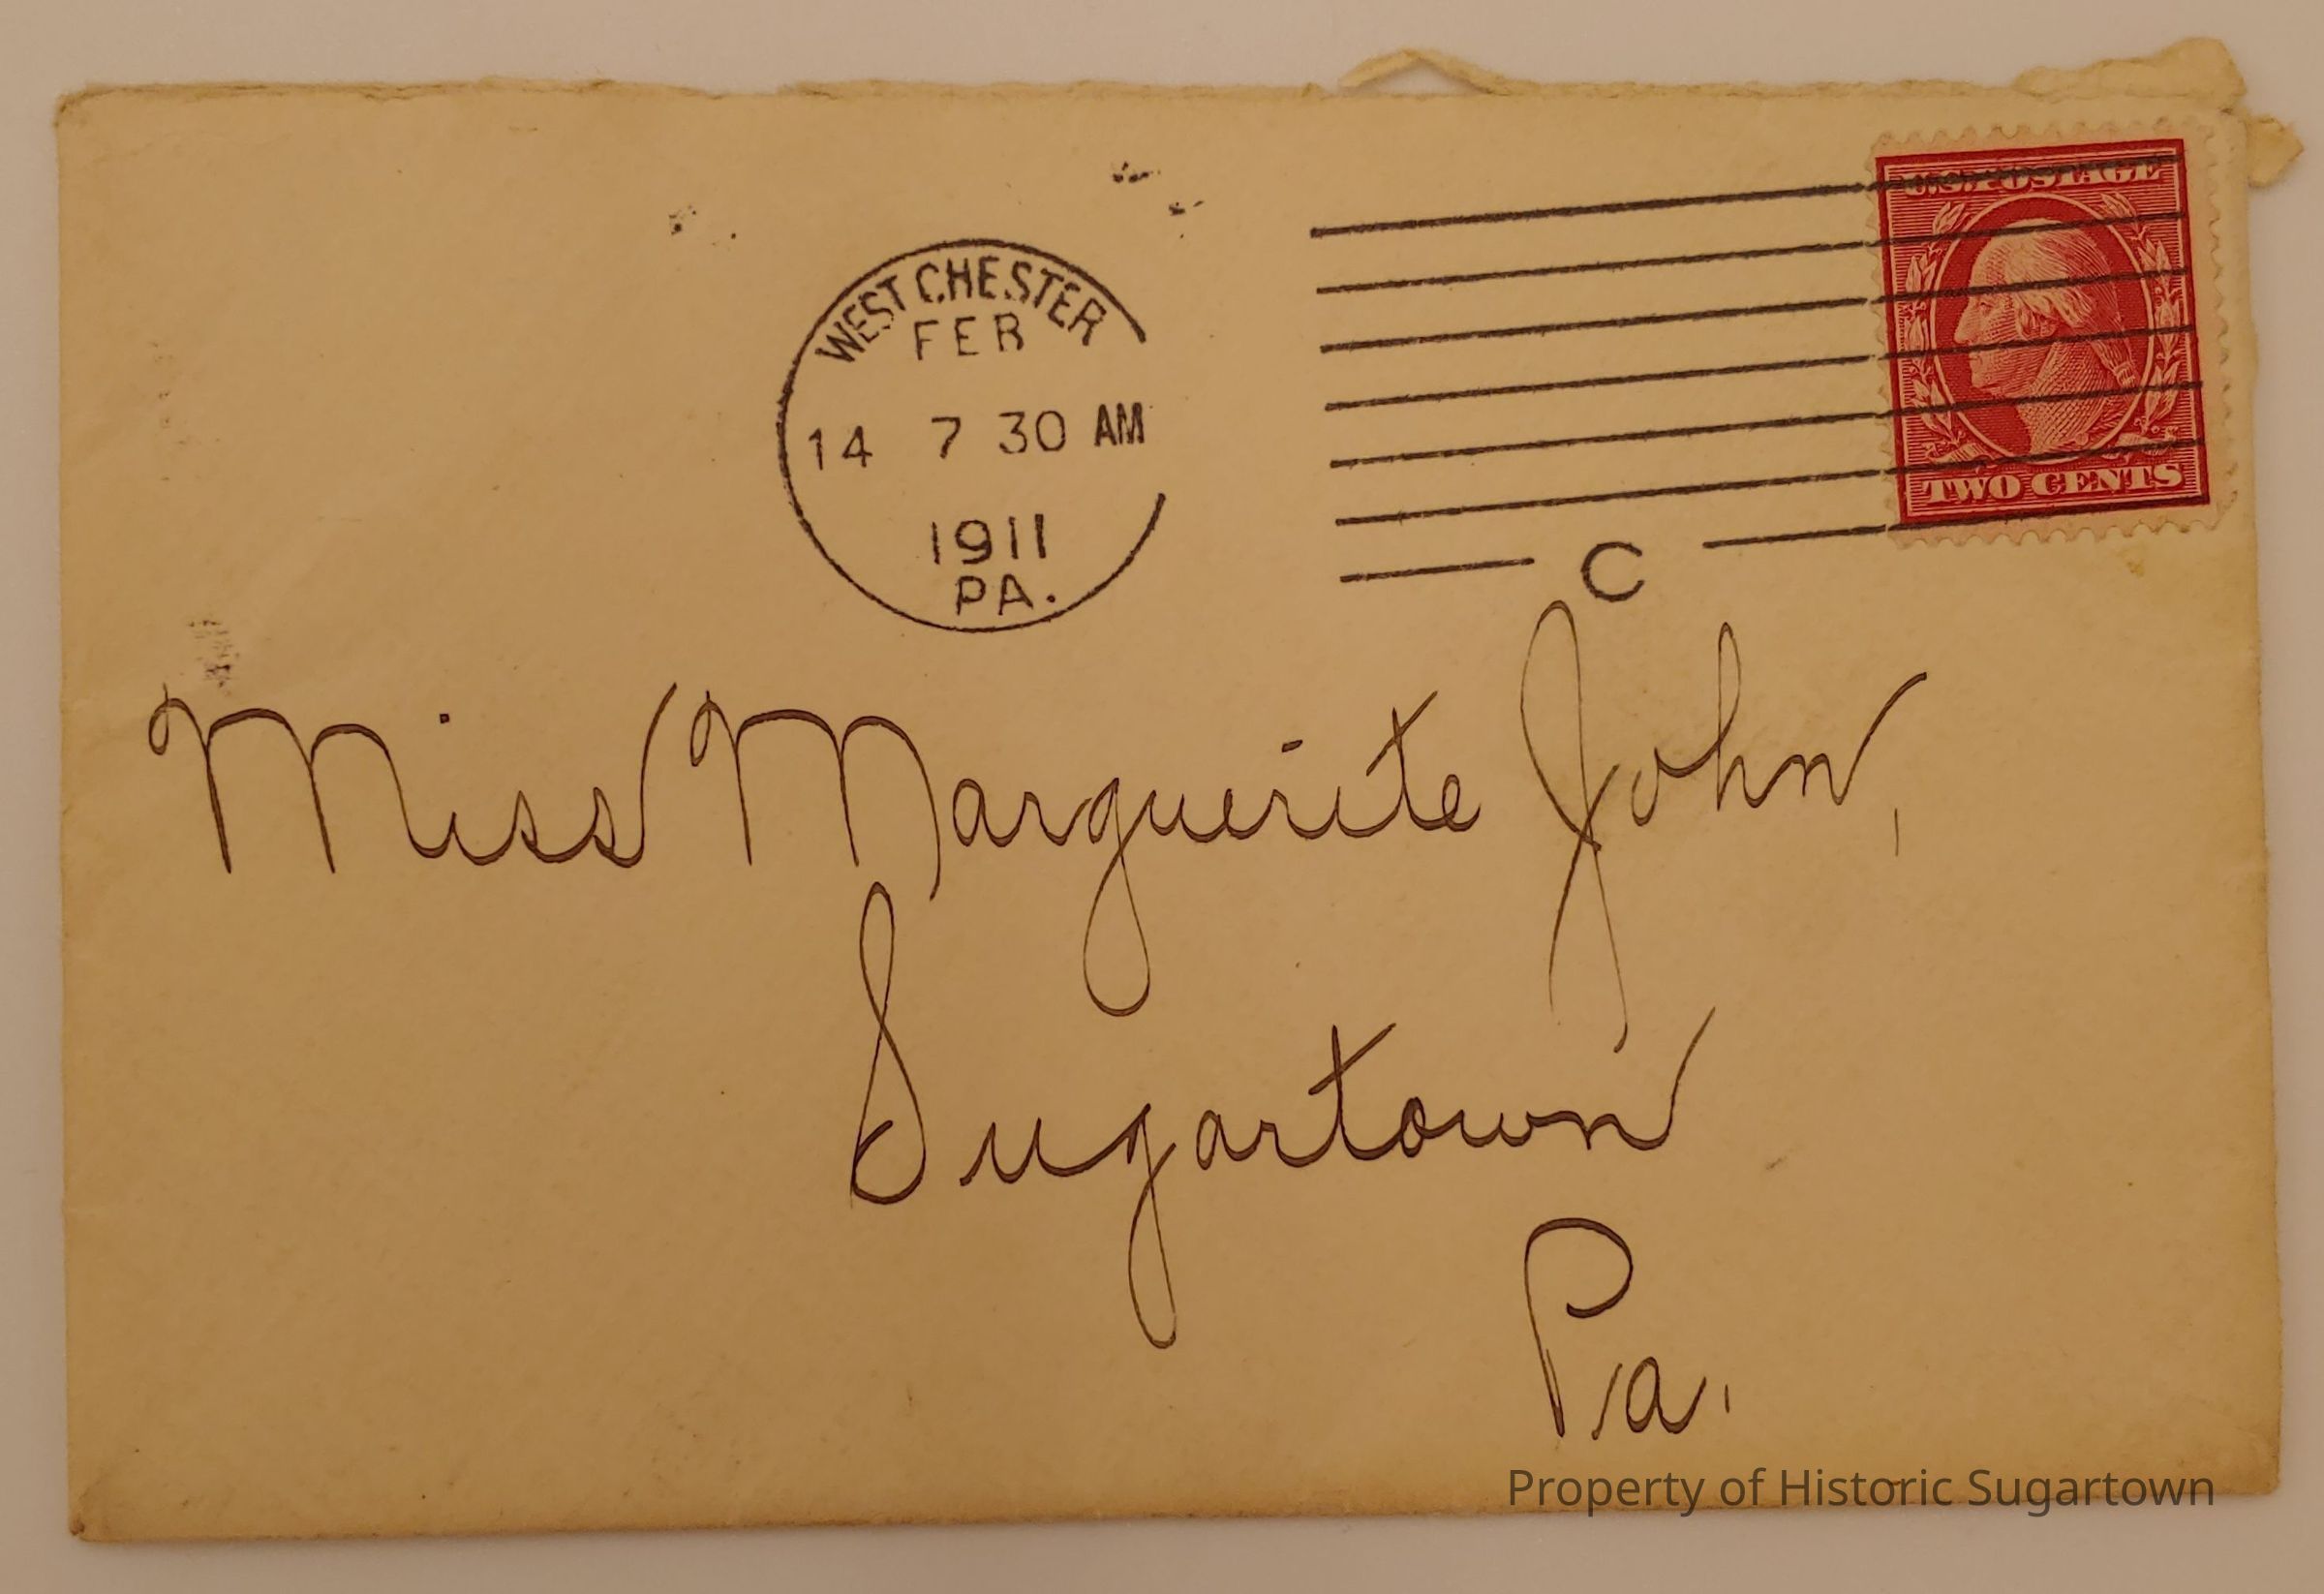 U.S. POSTAGE
TWO CENTS
WEST CHESTER
FEB
14 7 30 AM
1911
PA.
C
Miss Marguerite John,
Sugartown
Pa.
Property of Historic Sugartown